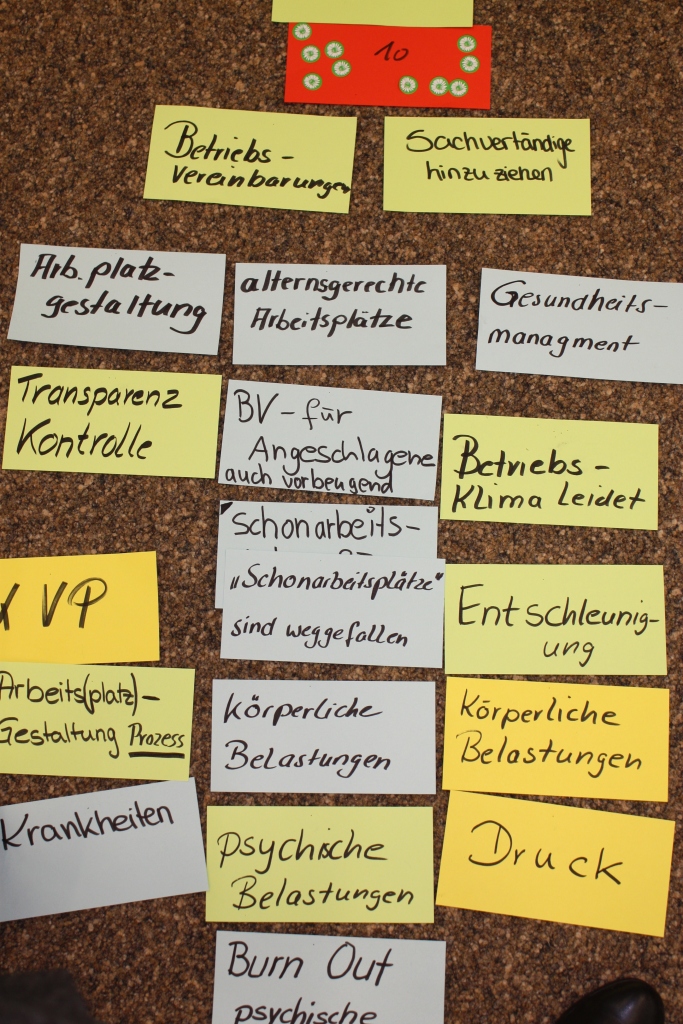 10
Betriebs-
vereinbarungen
Sachvertändige
hinzuziehen
Arb.platz-
gestaltung
alternsgerechte
Arbeitsplätze
Gesundheits-
managment
Transparenz
Kontrolle
BV-für
Angeschlagene
auch vorbeugend
Betriebs-
Klima Leidet
Schonarbeits-
"Schonarbeitsplätze"
sind weggefallen
Entschleunig-
ung
VP
Arbeits(platz)-
Gestaltung Prozess
Körperliche
Belastungen
Körperliche
Belastungen
Krankheiten
psychische
Belastungen
Druck
Burn Out
psychische